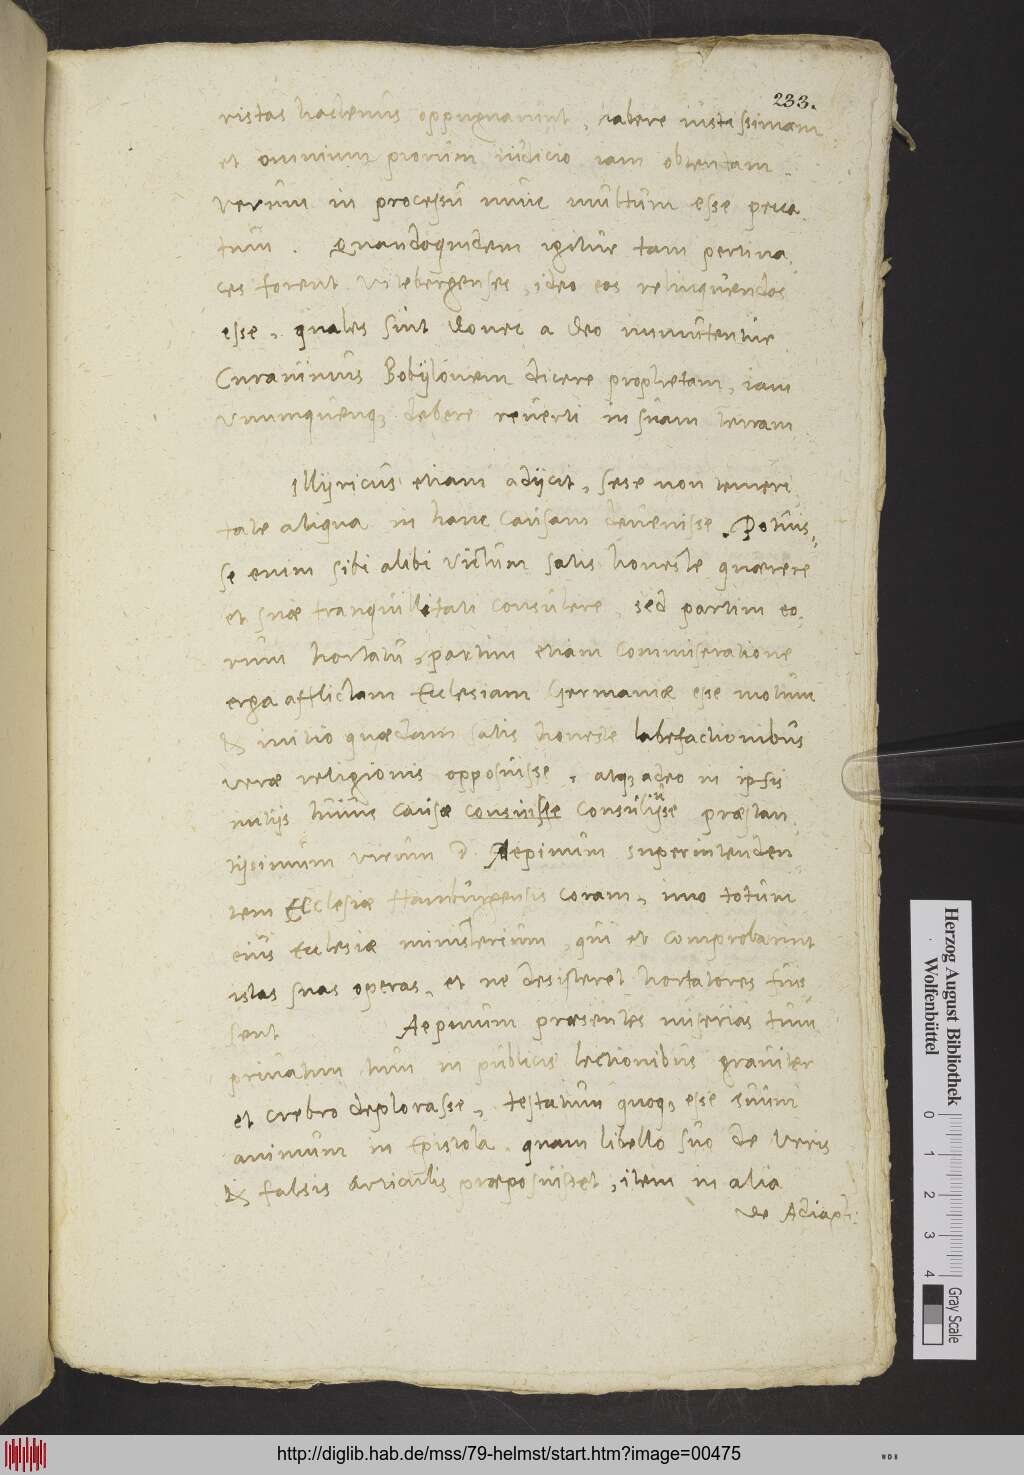 233.
ristas hactenus oppugnarint, habere iustissimam
et omnium piorum iudicio iam obtentam.
verum in processu nunc multum esse pecca
tum. Quandoquidem igitur tam pertina
ces forent Vitebergenses, ideo eos relinquendos
esse, quales sint donec a Deo immutentur
Curavimus Babylonem dicere prophetam, iam
vnumquenq, debere reverti in suam terram
Illyricus etiam adijcit, sese non temeri
tate aliqua in hanc causam devenisse. Potuis=
se enim sibi alibi victum satis honeste quaerere
et suae tranquillitati consulere, sed partim eo,
rum hortatu, partim etiam commiseratione
erga afflictam Ecclesiam Germaniae esse motum
& initio quaedam satis honeste labefactionibus
verae religionis opposuisse, atq, adeo in ipsis
initijs huius causae consuisse consuluisse praestan
tissimum virum D. Aepinum superintenden
tem Ecclesiae Hamburgensis coram, imo totum
eius Ecclesiae ministerium, qui et comprobarint
istas suas operas, et ne desisteret hortatores fuis
sent Aepinum praesentes miserias tum
privatim tum in publicis lectionibus graviter
et crebro deplorasse, testatum quoq, esse suum
animum in Epistola. quam libello suo de veris
& falsis Articulis praeposuisset, item in alia
de Adiaph:
Herzog August Bibliothek
Wolfenbüttel
0 1 2 3 4
Gray Scale
http://diglib.hab.de/mss/79-helmst/start.htm?image=00475